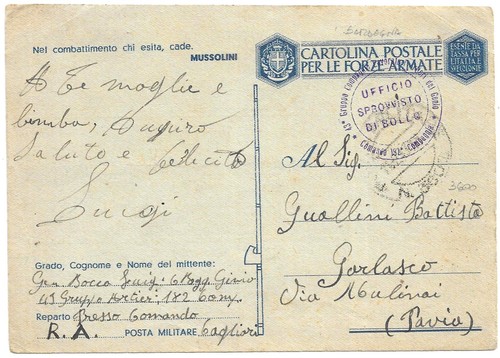 SARDEGNA
Nel combattimento chi esita, cade.
MUSSOLINI
CARTOLINA POSTALE
PER LE FORZE ARMATE
ESENTE DA
TASSA PER
L'ITALIA E
UFFICIO
SPROVVISTO
DI BOLLO
A Te moglie e
bimba, Auguro
Saluto e
Luigi
Al Sig.
3600
Guallini Battista
Garlasco
Via
(Pavia)
Grado, Cognome e Nome del mittente:
Gen. Bocca Luigi 6 Ragg. Genio
43 Gruppo Artier. 182 Com.
Reparto Presso Comando
R. A. POSTA MILITARE Cagliari